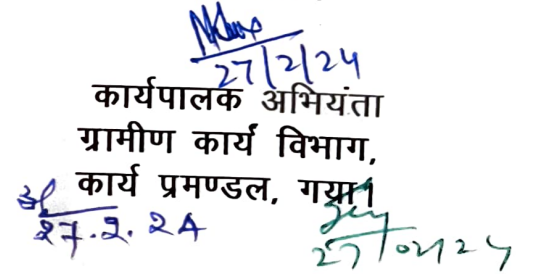 27/2/24
कार्यपालक अभियंता
ग्रामीण कार्य विभाग,
कार्य प्रमण्डल, गया।
27.2.24
27/02/24